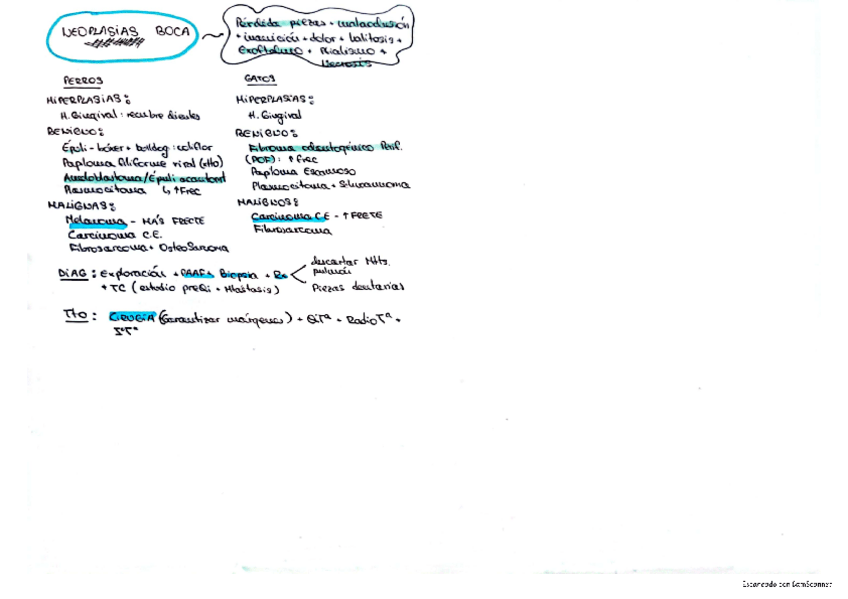 NEOPLASIAS BOCA
Pérdida piezas + maloclusión
+ inanición + dolor + halitosis +
exoftalmo + Ptialismo +
Necrosis
PERROS
HIPERPLASIAS:
H. Gingival: recubre dientes
BENIGNO:
Épuli - bóxer + bulldog: coliflor
Papiloma filiforme viral (tto)
Ameloblastoma/Épuli acantomat
Plasmocitoma ↳ ↑Frec
MALIGNAS:
Melanoma - MÁS FRECTE
Carcinoma C.E.
Fibrosarcoma + OsteoSarcoma
GATOS
HIPERPLASIAS:
H. Gingival
BENIGNO:
Fibroma odontogénico Perif.
(POF): ↑ frec
Papiloma Escamoso
Plasmocitoma + Schwannoma
MALIGNOS:
Carcinoma C.E - ↑ FRECTE
Fibrosarcoma
DIAG: Exploración + PAAF + Biopsia + Rx
descartar Mtts.
pulmón
Piezas dentarias
+ TC (estudio preQi + Mtastasis)
Tto: CIRUGÍA (Garantizar márgenes) + QiTª + RadioTª +
IªTª
Escaneado con CamScanner